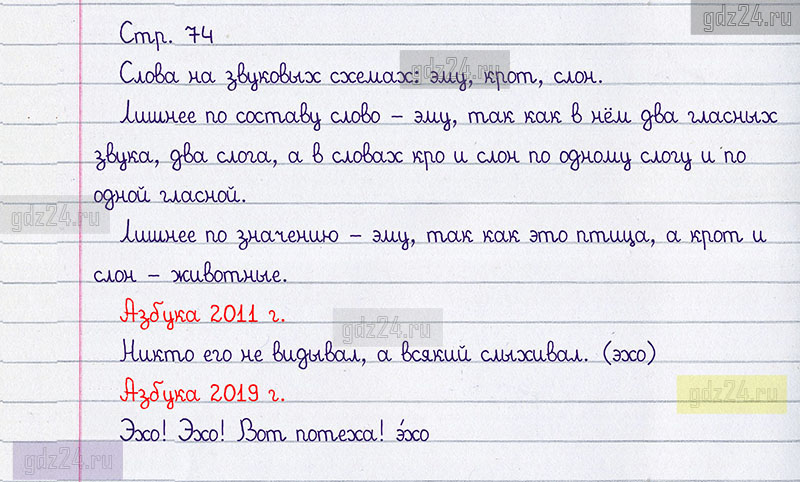 gdz24.ru
Стр. 74
gdz24.ru
Слова на звуковых схемах: эму, крот, слон.
Лишнее по составу слово – эму, так как в нём два гласных
звука, два слога, а в словах кро и слон по одному слогу и по
одной гласной.
gdz24.ru
Лишнее по значению – эму, так как это птица, а крот и
слон – животные.
Азбука 2011 г.
gdz24.ru
Никто его не видывал, а всякий слыхивал. (эхо)
Азбука 2019 г.
gdz24.ru
Эхо! Эхо! Вот потеха! э́хо
gdz24.ru